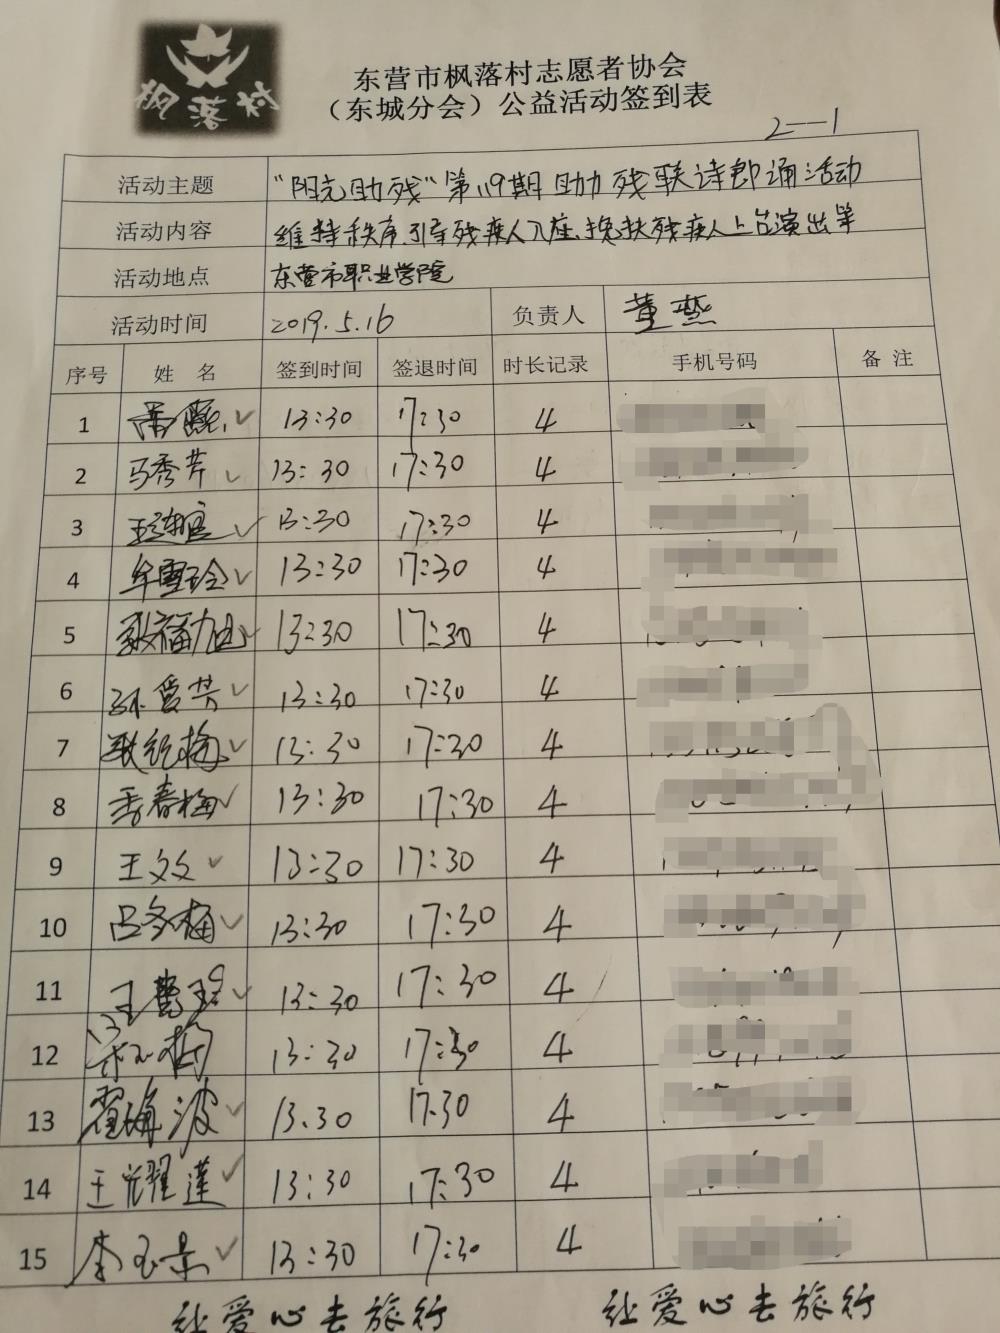 枫落村
东营市枫落村志愿者协会
（东城分会）公益活动签到表
2---1
活动主题 "阳光助残"第119期助力残联诗朗诵活动
活动内容 维持秩序、引导残疾人入座、搀扶残疾人上台演出等
活动地点 东营市职业学院
活动时间 2019.5.16 负责人 董燕
序号 姓 名 签到时间 签退时间 时长记录 手机号码 备 注
1 13:30 17:30 4
2 马秀芹 13:30 17:30 4
3 13:30 17:30 4
4 牟雪玲 13:30 17:30 4
5 13:30 17:30 4
6 孙爱芳 13:30 17:30 4
7 耿红梅 13:30 17:30 4
8 季春梅 13:30 17:30 4
9 王文文 13:30 17:30 4
10 吕冬梅 13:30 17:30 4
11 13:30 17:30 4
12 13:30 17:30 4
13 霍海波 13.30 17.30 4
14 王耀莲 13:30 17:30 4
15 李玉景 13:30 17:30 4
让爱心去旅行 让爱心去旅行